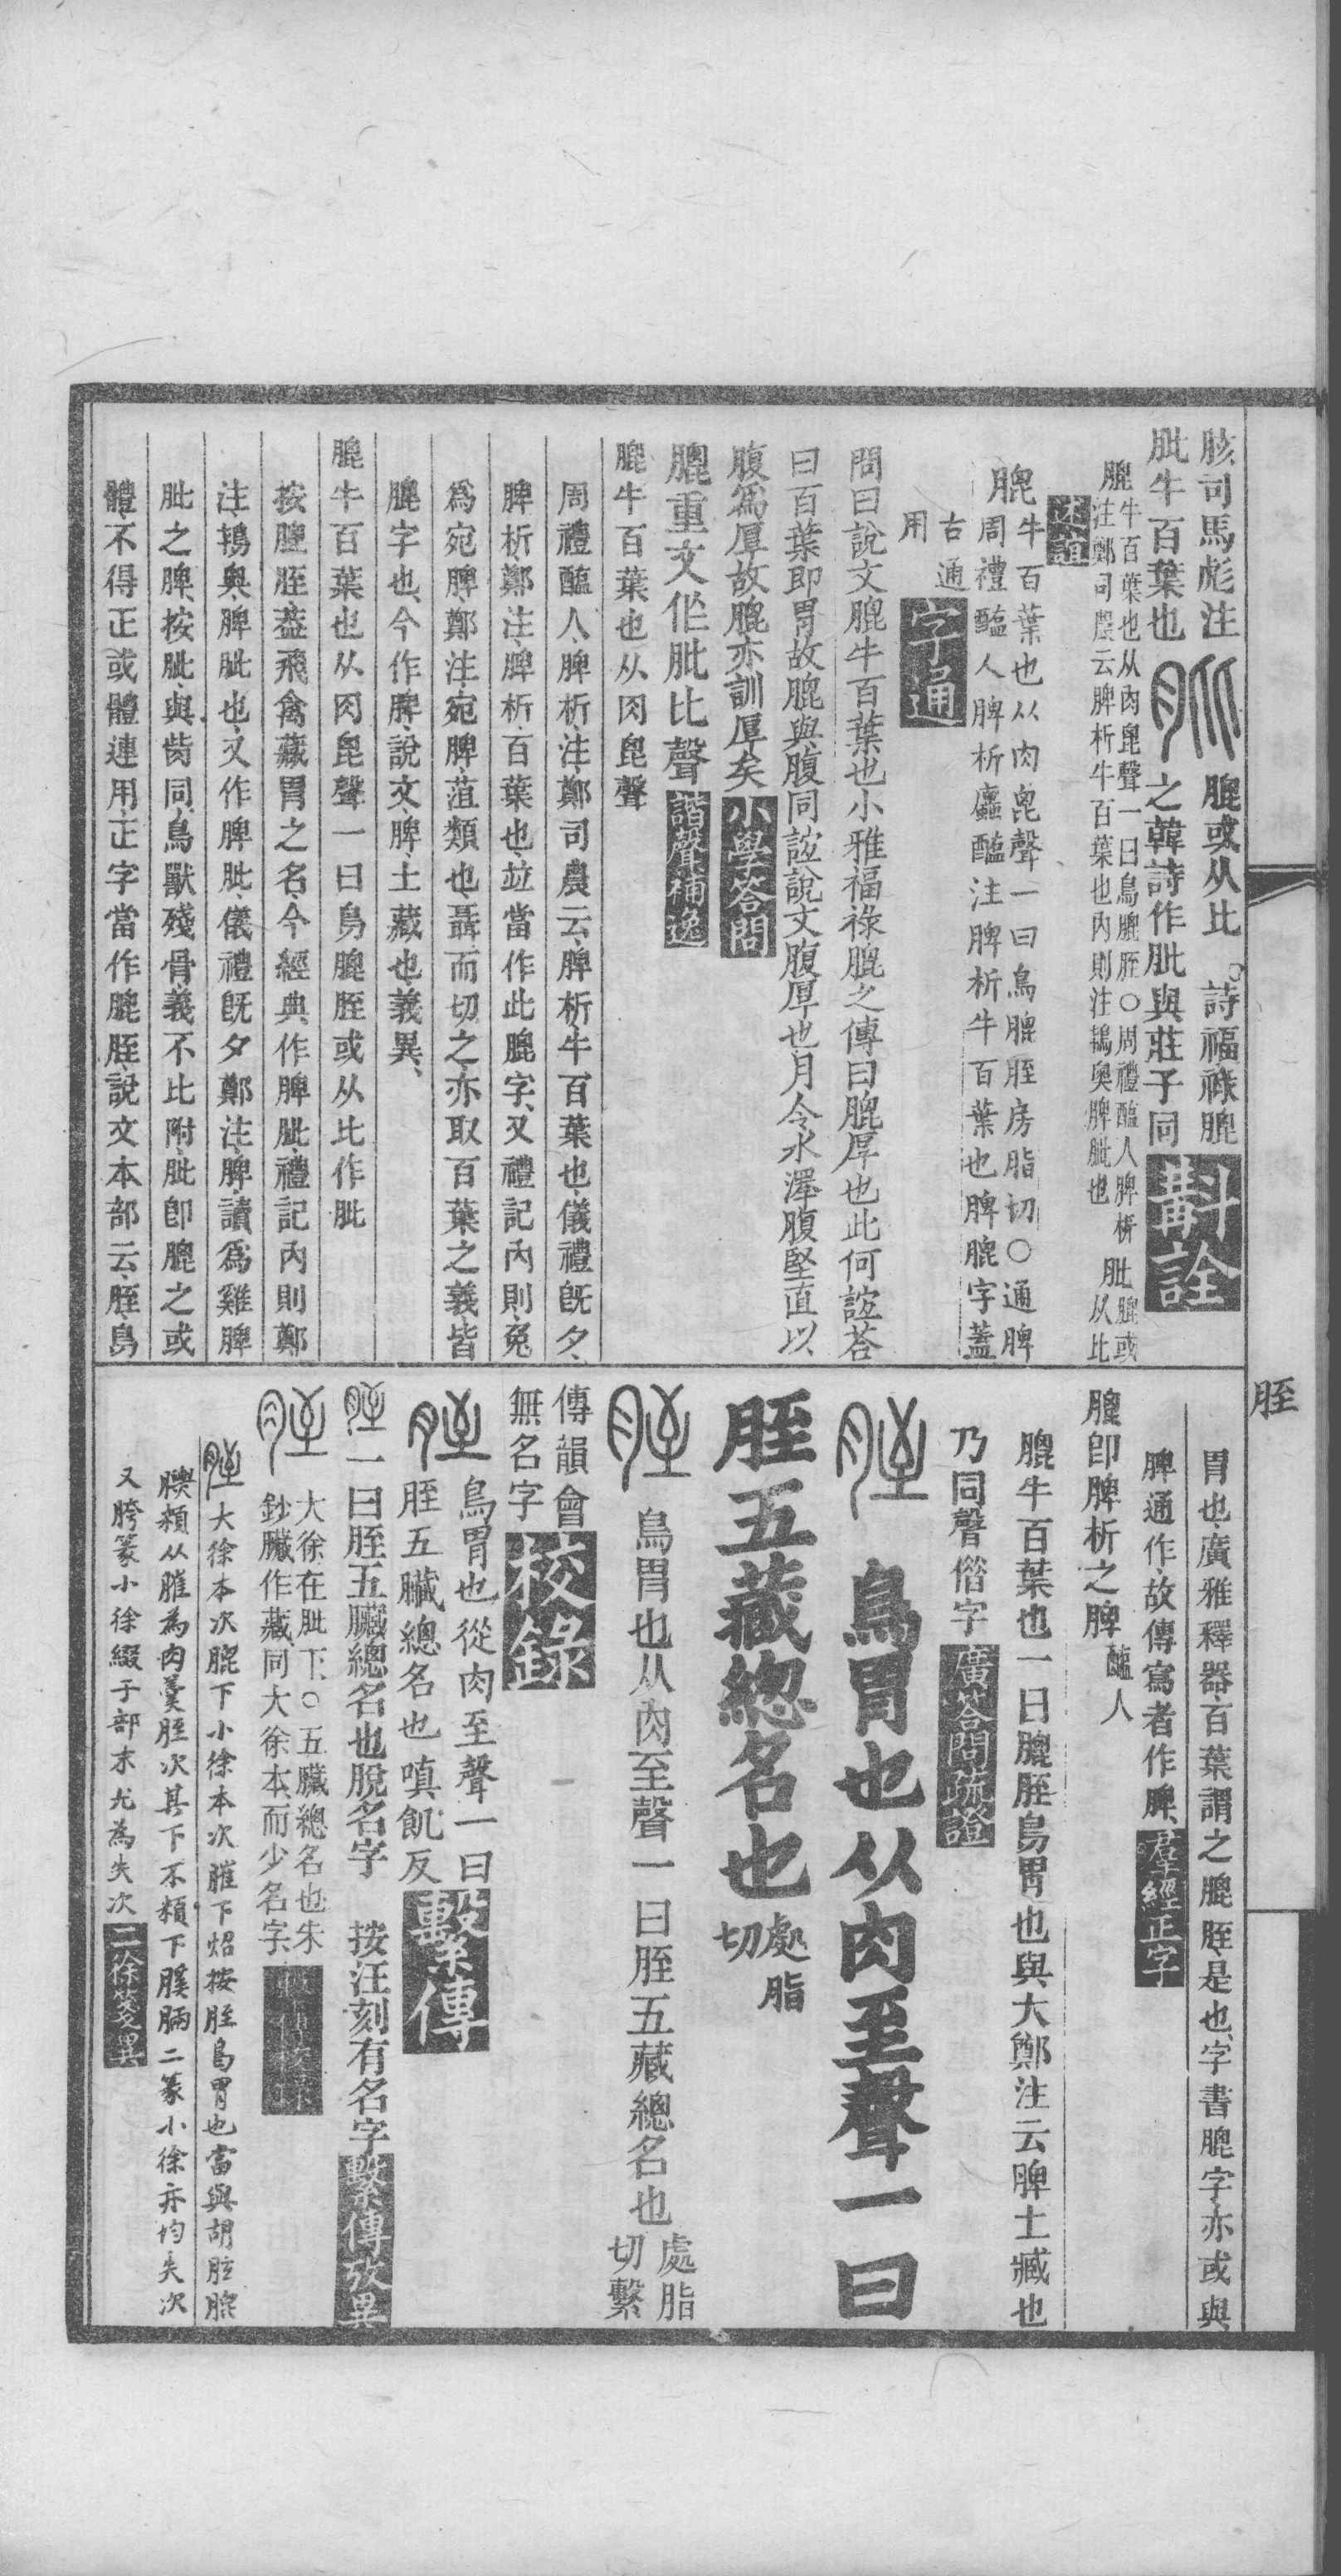 胘司馬彪注
肶牛百葉也
膍或从比
○詩福祿膍
之韓詩作肶與莊子同
斠詮
膍
牛百葉也从肉毘聲一曰鳥膍胵○周禮醢人脾析
注鄭司農云脾析牛百葉也內則注鴇奧脾肶也
肶
膍或
从比
膍
牛百葉也从肉毘聲一曰鳥膍胵房脂切○通脾
周禮醢人脾析蠯醢注脾析牛百葉也脾膍字蓋
古通
用
字通
問曰說文膍牛百葉也小雅福祿膍之傳曰膍厚也此何誼荅
曰百葉即胃故膍與腹同誼說文腹厚也月令水澤腹堅直以
腹爲厚故膍亦訓厚矣
小學答問
膍重文作肶比聲
諧聲補逸
膍牛百葉也从肉毘聲
周禮醢人脾析注鄭司農云脾析牛百葉也儀禮旣夕
脾析鄭注脾析百葉也竝當作此膍字又禮記內則兔
爲宛脾鄭注宛脾菹類也聶而切之亦取百葉之義皆
膍字也今作脾說文脾土藏也義異
膍牛百葉也从肉毘聲一曰鳥膍胵或从比作肶
按膍胵葢飛禽藏胃之名今經典作脾肶禮記內則鄭
注鴇奧脾肶也又作脾肶儀禮旣夕鄭注脾讀爲雞脾
肶之脾按肶與胔同鳥獸殘骨義不比附肶卽膍之或
體不得正或體連用正字當作膍胵說文本部云胵鳥
胵
胃也廣雅釋器百葉謂之膍胵是也字書膍字亦或與
脾通作故傳寫者作脾
羣經正字
膍卽脾析之脾
醢人
膍牛百葉也一曰膍胵鳥胃也與大鄭注云脾土臧也
乃同聲偕字
廣答問疏證
鳥胃也从肉至聲一曰
胵五藏總名也
處脂
切
鳥胃也从肉至聲一曰胵五藏總名也
處脂
切繫
傳韻會
無名字
校錄
鳥胃也從肉至聲一曰
胵五臟總名也嗔飢反
繫傳
一曰胵五臟總名也脫名字 按汪刻有名字
繫傳攷異
大徐在肶下○五臟總名也朱
鈔臟作藏同大徐本而少名字
大徐本次膍下小徐本次膗下炤按胵鳥胃也當與胡胘膘
腴類从膗為肉羹胵次其下不類下膎脼二篆小徐亦均失次
又胯篆小徐綴于部末尤為失次
二徐箋異